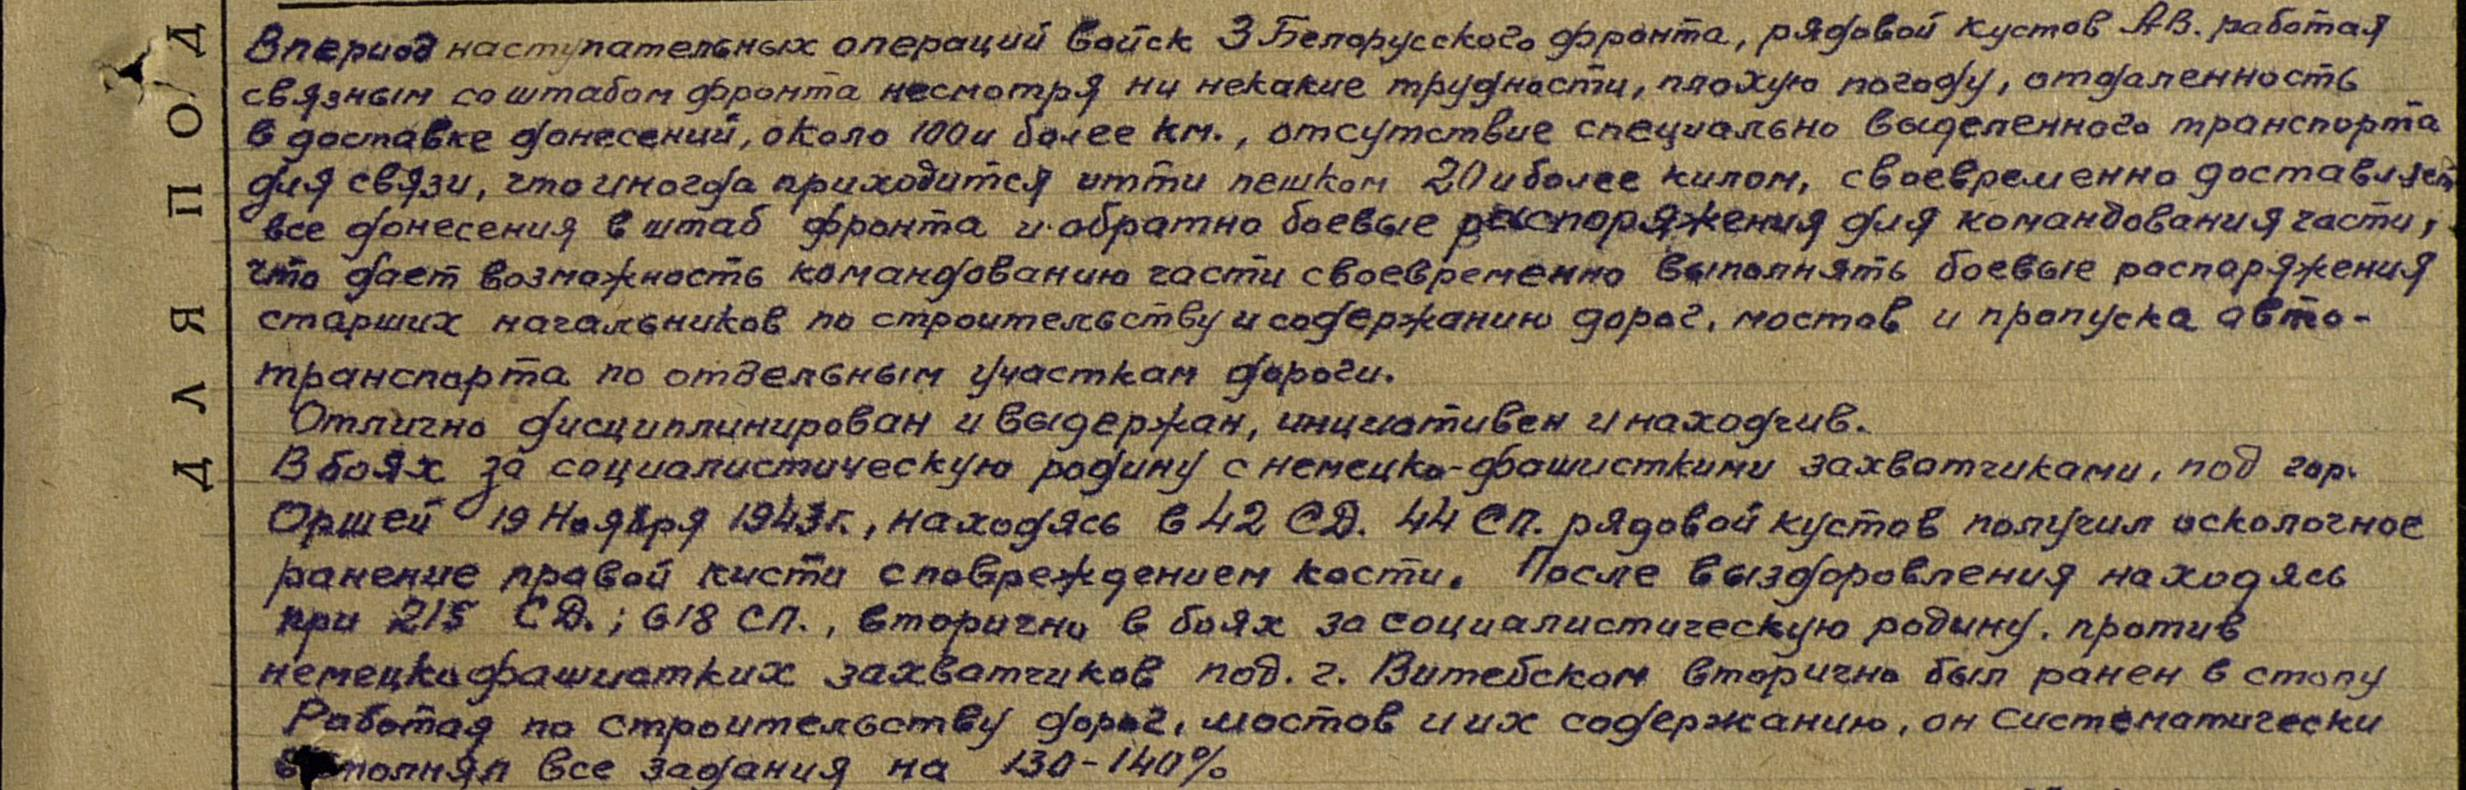 В период наступательных операций войск 3 Белорусского фронта, рядовой Кустов А.В. работая
связным со штабом фронта несмотря ни некакие трудности, плохую погоду, отдаленность
в доставке донесений, около 100 и более км., отсутствие специально выделенного транспорта
для связи, что иногда приходится итти пешком 20 и более килом, своевременно доставляет
все донесения в штаб фронта и обратно боевые распоряжения для командования части,
что дает возможность командованию части своевременно выполнять боевые распоряжения
старших начальников по строительству и содержанию дорог, мостов и пропуска авто-
транспорта по отдельным участкам дороги.
Отлично дисциплинирован и выдержан, инициативен и находчив.
В боях за социалистическую родину с немецко-фашисткими захватчиками, под гор.
Оршей 19 Ноября 1943 г., находясь в 42 СД. 44 СП. рядовой Кустов получил осколочное
ранение правой кисти с повреждением кости. После выздоровления находясь
при 215 СД.; 618 СП., вторично в боях за социалистическую родину. против
немецко фашистких захватчиков под. г. Витебском вторично был ранен в стопу
Работая по строительству дорог, мостов и их содержанию, он систематически
выполнял все задания на 130-140%
ДЛЯ ПОД